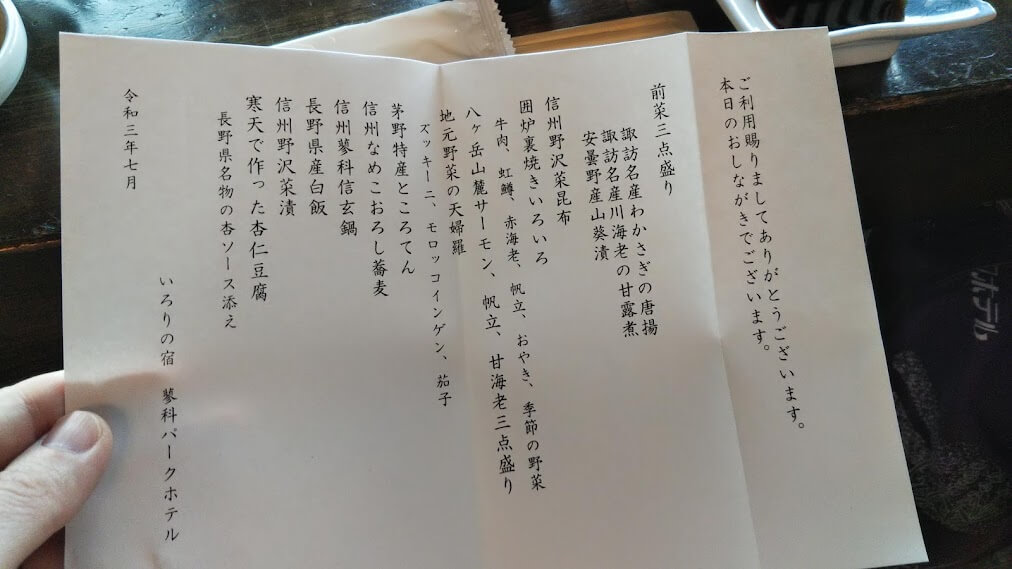 ご利用賜りましてありがとうございます。
本日のおしながきでございます。
前菜三点盛り
諏訪名産わかさぎの唐揚
諏訪名産川海老の甘露煮
安曇野産山葵漬
信州野沢菜昆布
囲炉裏焼きいろいろ
牛肉、虹鱒、赤海老、帆立、おやき、季節の野菜
八ヶ岳山麓サーモン、帆立、甘海老三点盛り
地元野菜の天婦羅
ズッキーニ、モロッコインゲン、茄子
茅野特産ところてん
信州なめこおろし蕎麦
信州蓼科信玄鍋
長野県産白飯
信州野沢菜漬
寒天で作った杏仁豆腐
長野県名物の杏ソース添え
いろりの宿　蓼科パークホテル
令和三年七月
ホテル